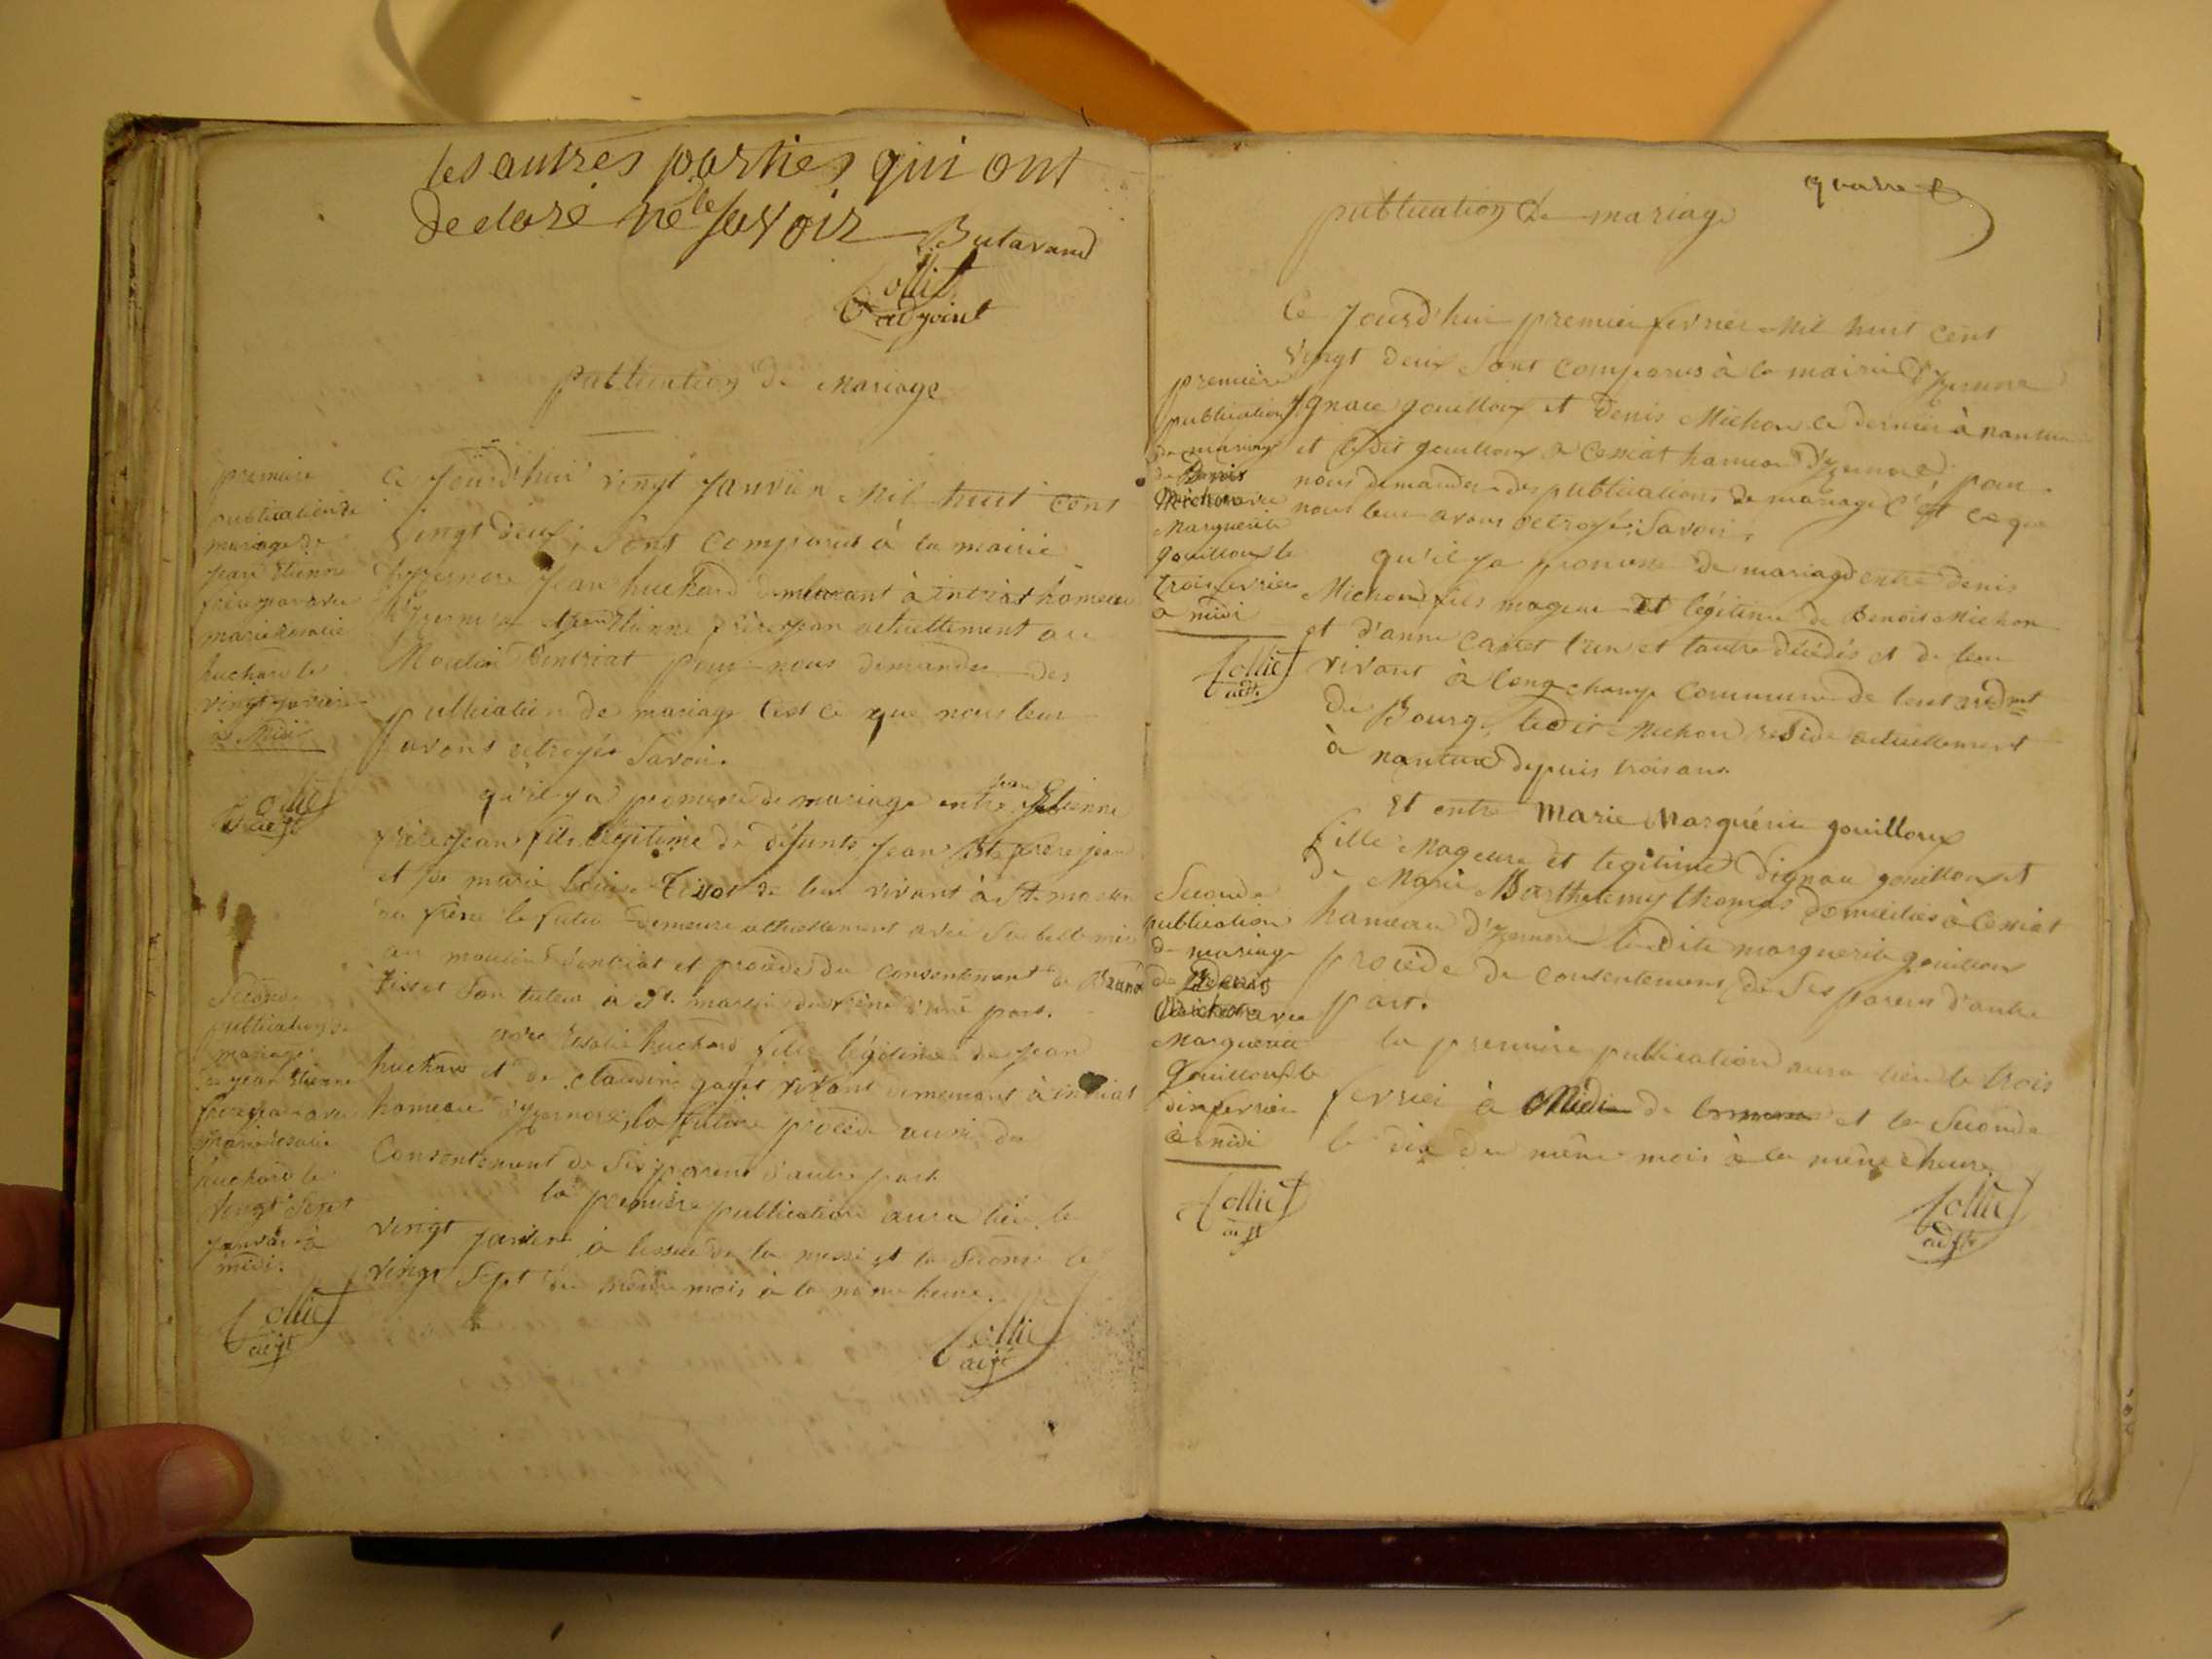 les autres parties qui ont
declaré ne le savoir Butavand
Colliet
adjoint
publication de Mariage
premiere
publication de
mariage de
jean Etienne
frerejean avec
marie Rosalie
huchard le
vingt janvier
à Midi
Colliet
adjt
Ce Jourd'hui vingt Janvier Mil huit cent
vingt deux, sont comparus à la mairie
d'Yzernore Jean huchard demeurant à intriat hameau
d'Yzernore et jean Etienne frerejean actuellement au
Moulin d'intriat pour nous demander des
publication de mariage C'est ce que nous leur
avons octroyés Savoir.
qu'il y a promesse de mariage entre jean Etienne
frerejean fils légitime de défunts Jean Bte frere jean
et de marie louise Tissot de leur vivant à St. martin
du frêne le futur demeure actuellement avec sa belle mère
au moulin d'intriat et procède du consentement de
tissot son tuteur à St. martin du frêne d'une part.
avec Rosalie huchard fille légitime de Jean
huchard et de claudine gayet vivant demeurant à intriat
hameau d'Yzernore, la future procède aussi du
Consentement de ses parens d'autre part
la première publication aura lieu le
vingt janvier à lissue de la messe et la seconde le
vingt Sept du même mois à la même heure.
Colliet
adjt
Seconde
publication de
mariage
de jean Etienne
frerejean avec
marie Rosalie
huchard le
vingt Sept
janvier à
midi.
Colliet
adjt
quatre
publication de mariage
Ce Jourd'hui premier fevrier Mil huit cent
vingt deux sont comparus à la mairie d'Yzernore
Ignace gouilloux et Denis Michon ce dernier à nantua
et ledit gouilloux à Ceniat hameau d'Yzernore, pour
nous demander des publications de mariage C'est ce que
nous leur avons octroyé; Savoir,
qu'il y a promesse de mariage entre Denis
Michon, fils mageur et légitime de Benoit Michon
et d'anne Carret l'un et l'autre décédés et de leur
vivant à Longchamp Commune de lent ardmt
de Bourg, ledit Michon reside actuellement
à nantua depuis trois ans
première
publication
de mariage
de Denis
Michon avec
Marguerite
gouilloux le
trois fevrier
à midi
Colliet
adjt.
Et entre Marie Marguérite gouilloux
fille Mageure et legitime d'ignace gouilloux et
de Marie Barthelemy thomas domiciliés à Ceniat
hameau d'Yzernore ladite marguerite gouilloux
procède du consentement de ses parens d'autre
part.
la premiere publication aura lieu le trois
fevrier à Midi de et la Seconde
le dix du même mois à la même heure.
Colliet
adjt
Seconde
publication
de mariage
de Denis
Michon avec
Marguerite
Gouilloux le
dix fevrier
à midi
Colliet
adjt